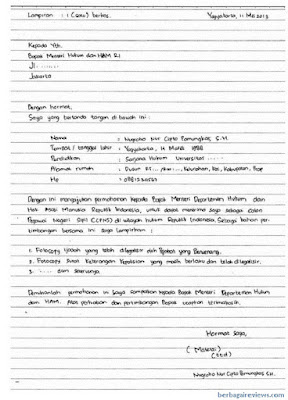 Lampiran : 1 (satu) berkas. Yogyakarta, 11 Mei 2013
Kepada Yth.
Bapak Menteri Hukum dan HAM RI
Jl. ........
Jakarta
Dengan hormat,
Saya yang bertanda tangan di bawah ini :
Nama : Nugroho Nur Cipto Pamungkas, S.H.
Tempat / tanggal lahir : Yogyakarta, 14 Maret
Pendidikan : Sarjana Hukum Universitas .....
Alamat rumah : Dusun RT.../Rw...., Kelurahan, Kec, Kabupaten, Prop
Hp :
Dengan ini mengajukan permohonan kepada Bapak Menteri Departemen Hukum dan
Hak Asasi Manusia Republik Indonesia, untuk dapat menerima saya sebagai Calon
Pegawai Negeri Sipil (CPNS) di wilayah hukum Republik Indonesia. Sebagai bahan per-
timbangan bersama ini saya lampirkan :
1. Fotocopy Ijazah yang telah dilegalisir oleh Pejabat yang Berwenang.
2. Fotocopy Surat Keterangan Kepolisian yang masih berlaku dan telah dilegalisir.
3. ..... dan seterusnya.
Demikianlah permohonan ini saya sampaikan kepada Bapak Menteri Departemen Hukum
dan HAM. Atas perhatian dan pertimbangan Bapak ucapkan terimakasih.
Hormat Saya,
( Materai )
( ttd )
Nugroho Nur Cipto Pamungkas SH.
berbagaireviews.com